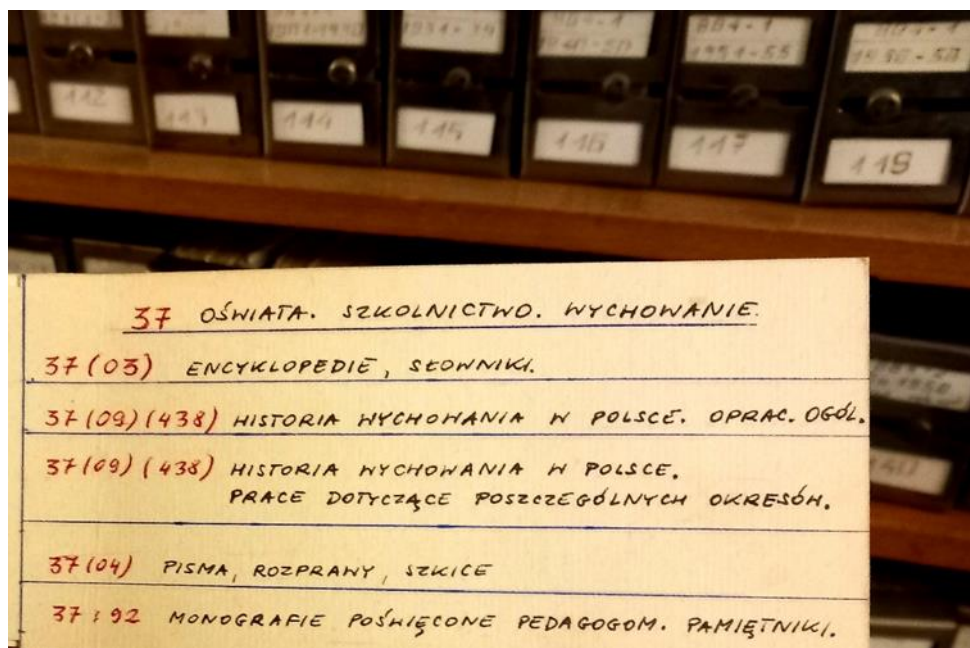 1934-39
1954-55
112
113
114
115
116
117
119
37 OŚWIATA. SZKOLNICTWO. WYCHOWANIE.
37 (03) ENCYKLOPEDIE, SŁOWNIKI.
37 (09) (438) HISTORIA WYCHOWANIA W POLSCE. OPRAC. OGÓL.
37 (09) (438) HISTORIA WYCHOWANIA W POLSCE.
PRACE DOTYCZĄCE POSZCZEGÓLNYCH OKRESÓW.
37 (04) PISMA, ROZPRAWY, SZKICE
37 : 92 MONOGRAFIE POŚWIĘCONE PEDAGOGOM. PAMIĘTNIKI.